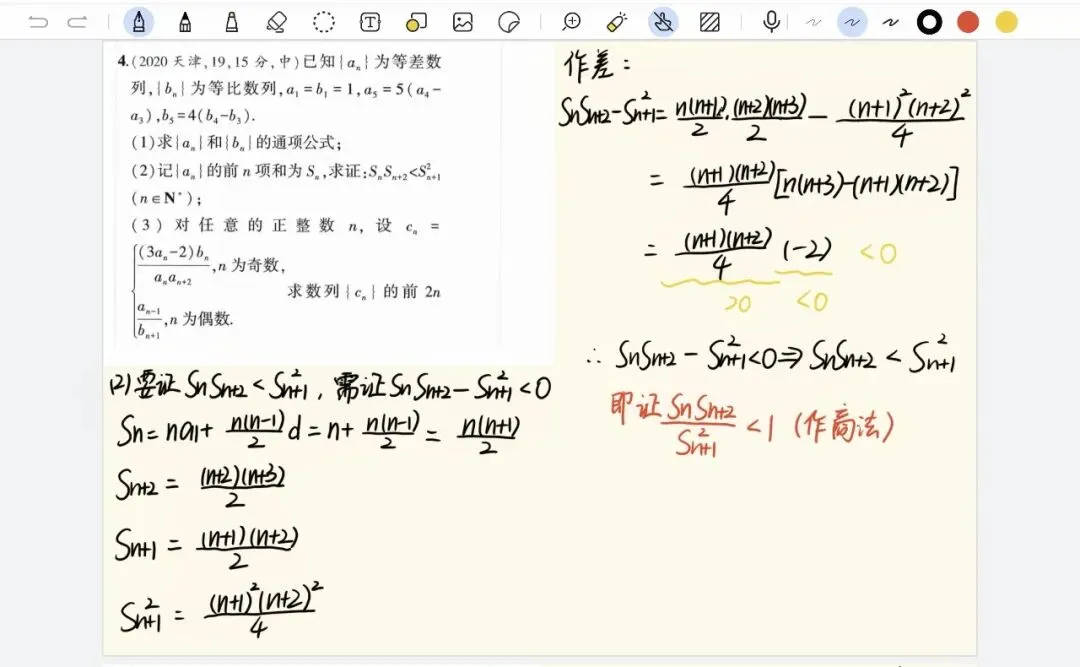 4.(2020天津,19,15分,中)已知{aₙ}为等差数
列,{bₙ}为等比数列,a₁=b₁=1,a₅=5(a₄-
a₃),b₅=4(b₄-b₃).
(1)求{aₙ}和{bₙ}的通项公式;
(2)记{aₙ}的前n项和为Sₙ,求证:SₙSₙ₊₂<S²ₙ₊₁
(n∈N*);
(3)对任意的正整数n,设cₙ=
{(3aₙ-2)bₙ/(aₙaₙ₊₂),n为奇数,
求数列{cₙ}的前2n
aₙ₋₁/bₙ₊₁,n为偶数.
(2)要证SₙSₙ₊₂<S²ₙ₊₁,需证SₙSₙ₊₂-S²ₙ₊₁<0
Sₙ=na₁+n(n-1)/2 d=n+n(n-1)/2=n(n+1)/2
Sₙ₊₂=(n+2)(n+3)/2
Sₙ₊₁=(n+1)(n+2)/2
S²ₙ₊₁=(n+1)²(n+2)²/4
作差:
SₙSₙ₊₂-S²ₙ₊₁=n(n+1)/2·(n+2)(n+3)/2-(n+1)²(n+2)²/4
=(n+1)(n+2)/4[n(n+3)-(n+1)(n+2)]
=(n+1)(n+2)/4(-2) <0
>0 <0
∴SₙSₙ₊₂-S²ₙ₊₁<0⇒SₙSₙ₊₂<S²ₙ₊₁
即证SₙSₙ₊₂/S²ₙ₊₁<1(作商法)